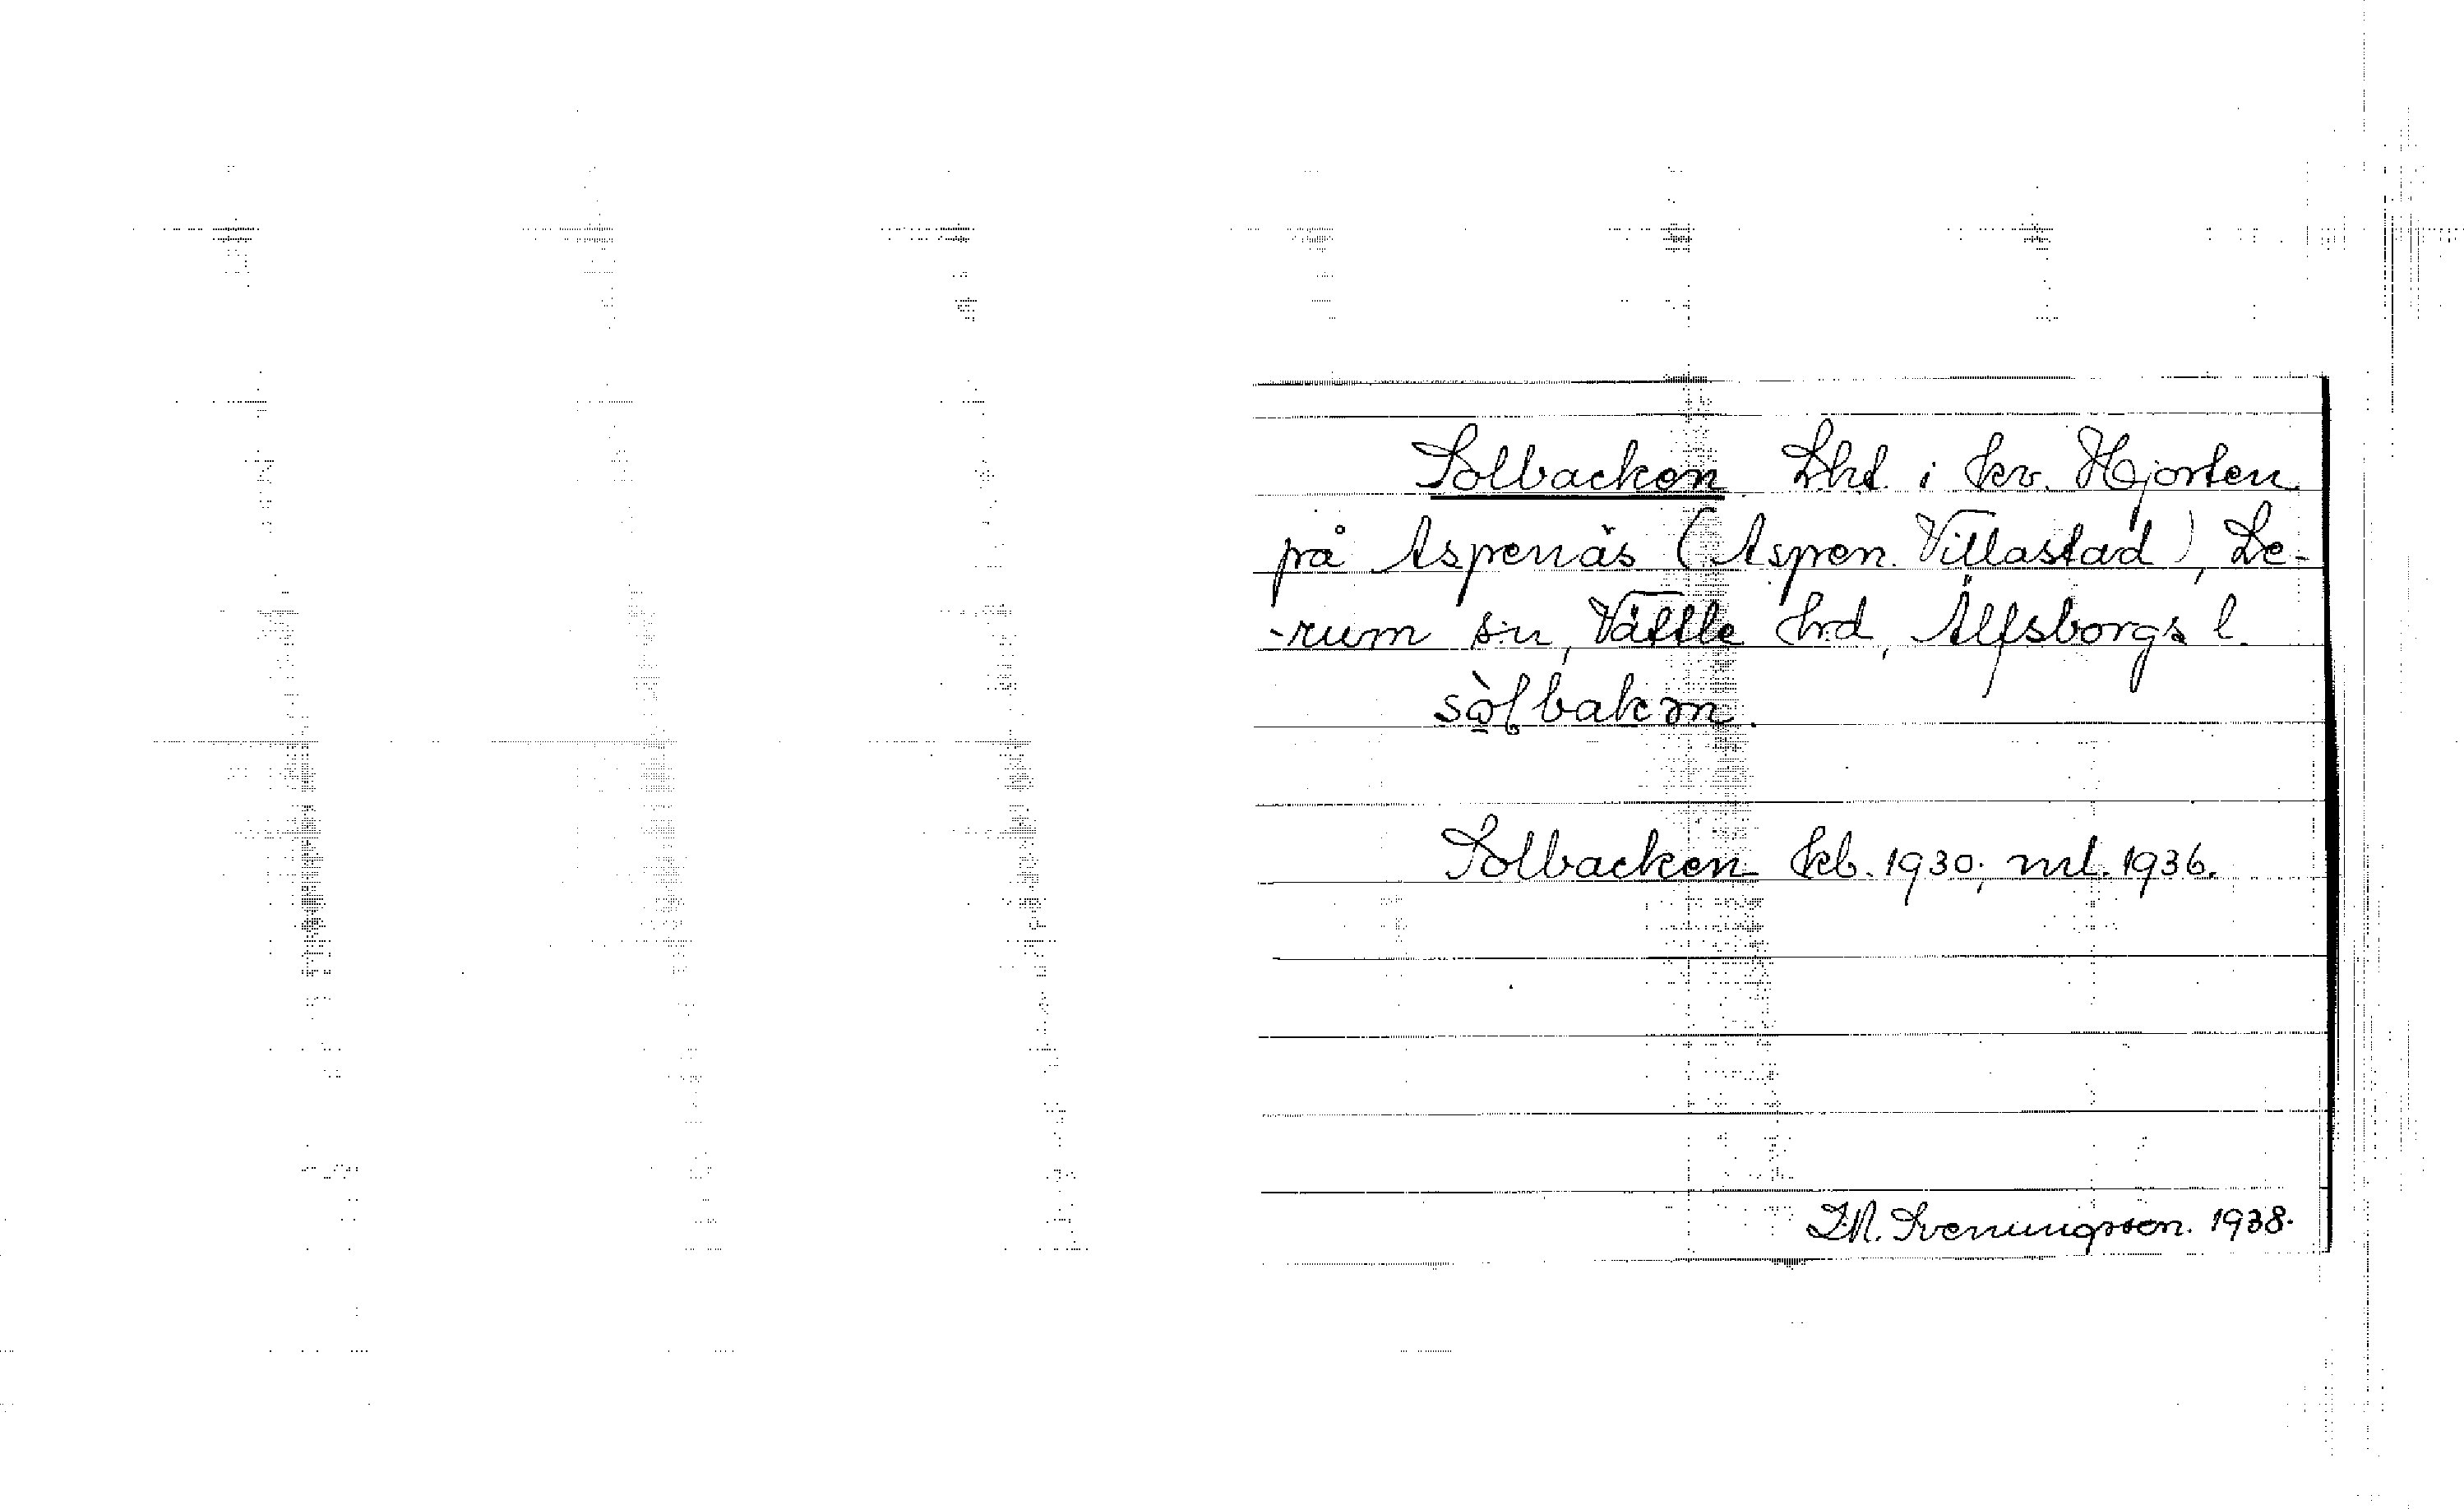 Solbacken. Lht. i kv. Hjorten
på Aspenäs (Aspen. Villastad), Le-
-rum sn, Vättle hrd, Älfsborgs l.
sòlbakən.
Solbacken kb. 1930; ml. 1936.
I.M. Sveningsson. 1938.